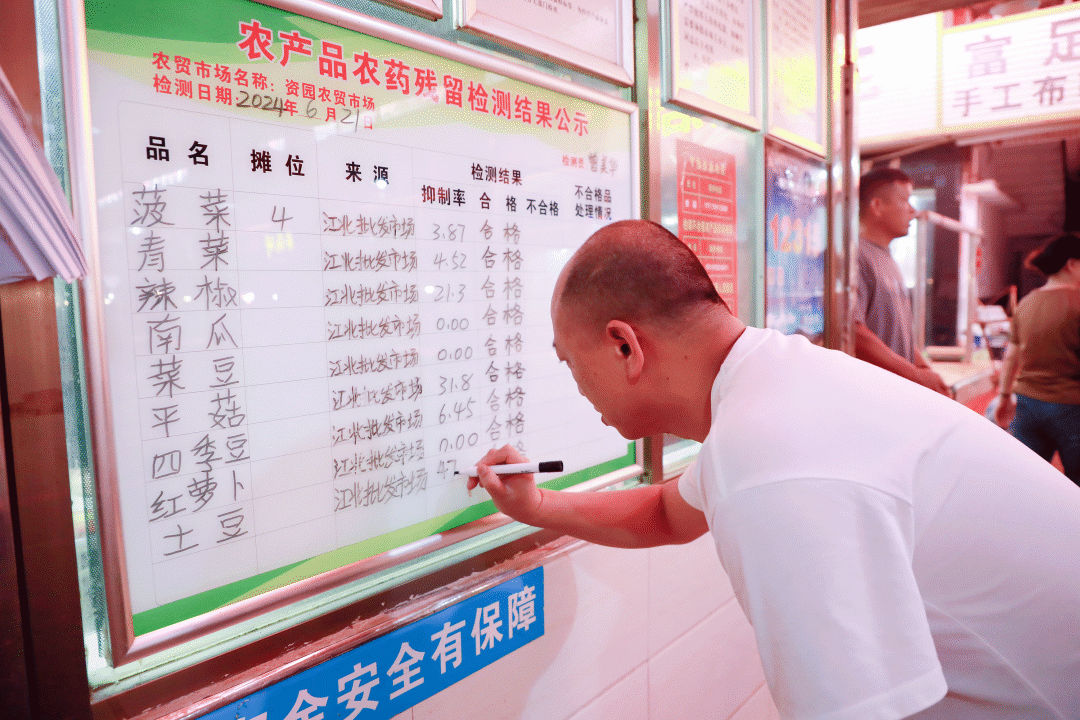 农产品农药残留检测结果公示
农贸市场名称：资园农贸市场
检测日期 2024年6月21日
检测员
品名 摊位 来源 检测结果 不合格品处理情况
抑制率 合格 不合格
菠菜 4 江北批发市场 3.87 合格
青菜 江北批发市场 4.52 合格
辣椒 江北批发市场 21.3 合格
南瓜 江北批发市场 0.00 合格
菜豆 江北批发市场 0.00 合格
平菇 江北批发市场 31.8 合格
四季豆 江北批发市场 6.45 合格
红萝卜 江北批发市场 0.00 合格
土豆 江北批发市场
安全有保障
富足
手工布